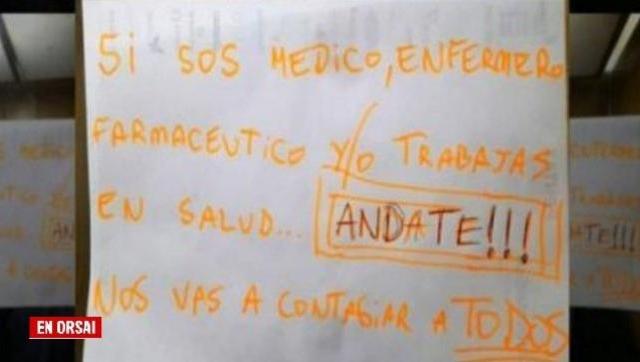 SI SOS MEDICO, ENFERMERO
FARMACEUTICO Y/O TRABAJAS
EN SALUD... ANDATE!!!
NOS VAS A CONTAGIAR A TODOS
EN ORSAI